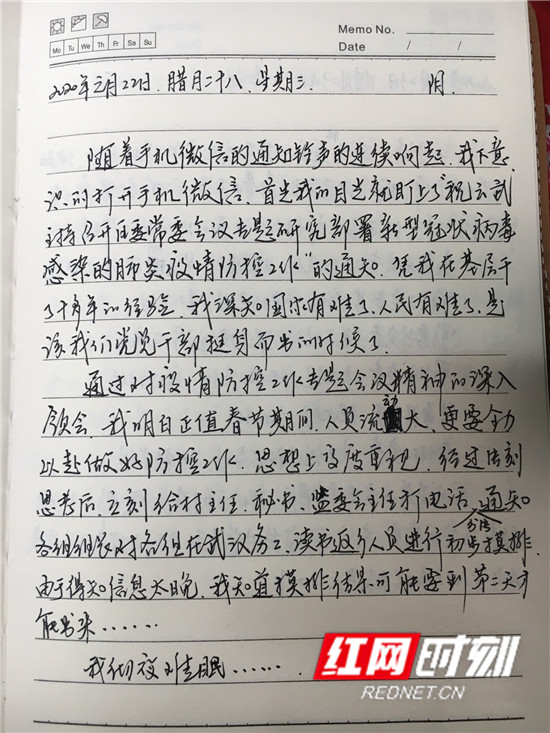 Memo No.
Mo Tu We Th Fr Sa Su
Date / /
2020年元月22日.腊月二十八.星期三. 阴.
随着手机微信的通知铃声的连续响起.我下意
识的打开手机微信.首先我的目光就盯上了"祝云武
主持召开县委常委会议专题研究部署新型冠状病毒
感染的肺炎疫情防控工作"的通知.凭我在基层干
了十多年的经验.我深知国家有难了.人民有难了.是
该我们党员干部挺身而出的时候了.
通过对疫情防控工作专题会议精神的深入
领会.我明白正值春节期间.人员流动大.更要全力
以赴做好防控工作.思想上高度重视.经过
思考后.立刻给村主任.秘书.监委会主任打电话.通知
各组组长对各组在武汉务工.读书返乡人员进行初步摸排.
由于得知信息太晚.我知道摸排结果可能要到第二天才
能出来……
我彻夜难眠……
红网时刻
REDNET.CN